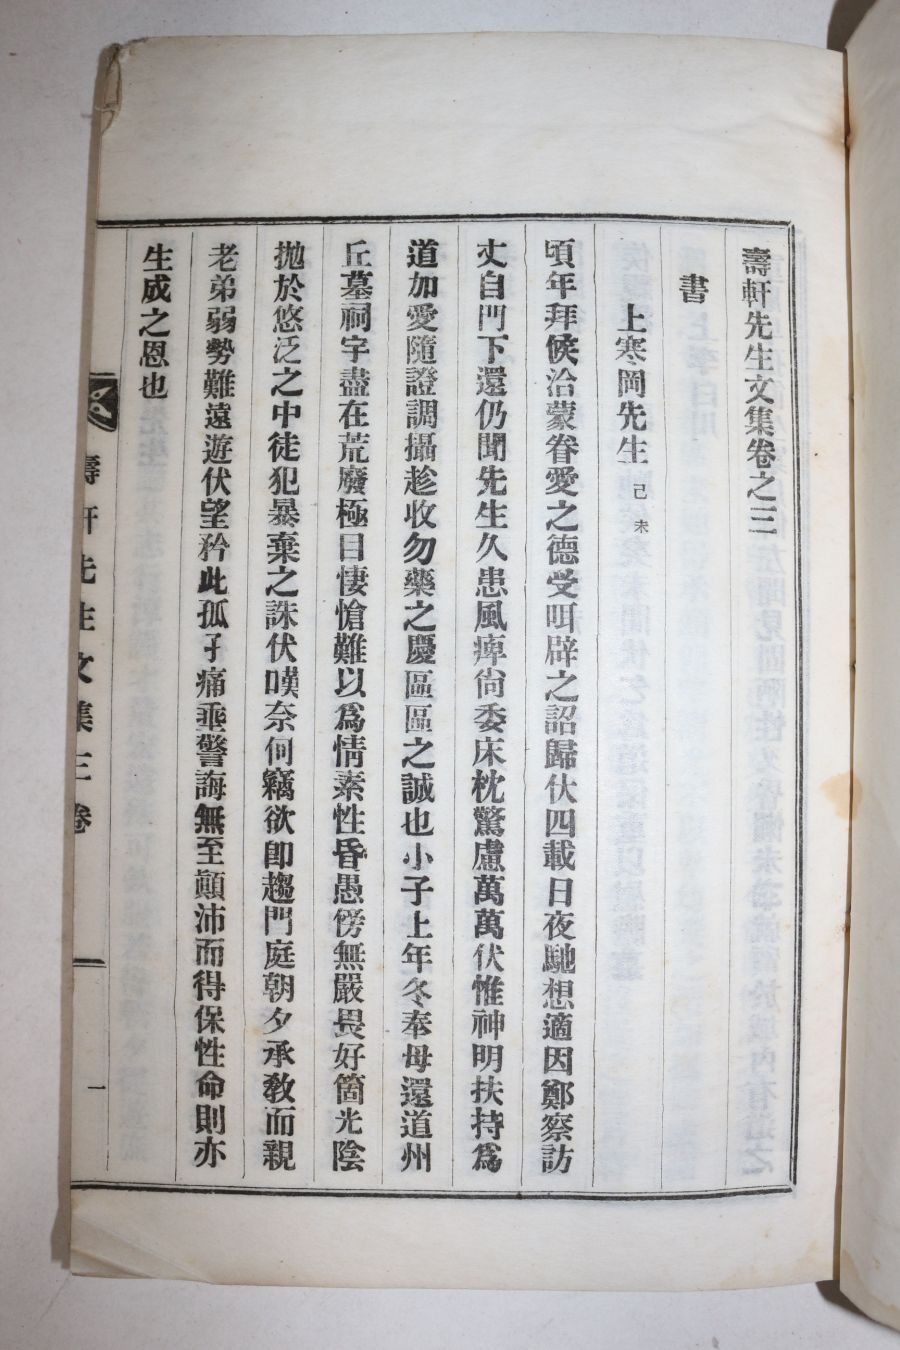 壽軒先生文集卷之三
書
上寒岡先生 己未
頃年拜候洽蒙眷愛之德受咡辟之詔歸伏四載日夜馳想適因鄭察訪
丈自門下還仍聞先生久患風痺尙委床枕驚慮萬萬伏惟神明扶持爲
道加愛隨證調攝趁收勿藥之慶區區之誠也小子上年冬奉母還道州
丘墓祠宇盡在荒廢極目悽愴難以爲情素性昏愚傍無嚴畏好箇光陰
拋於悠泛之中徒犯暴棄之誅伏嘆奈何竊欲卽趨門庭朝夕承敎而親
老弟弱勢難遠遊伏望矜此孤孑痛垂警誨無至顚沛而得保性命則亦
生成之恩也
壽軒先生文集三卷
一